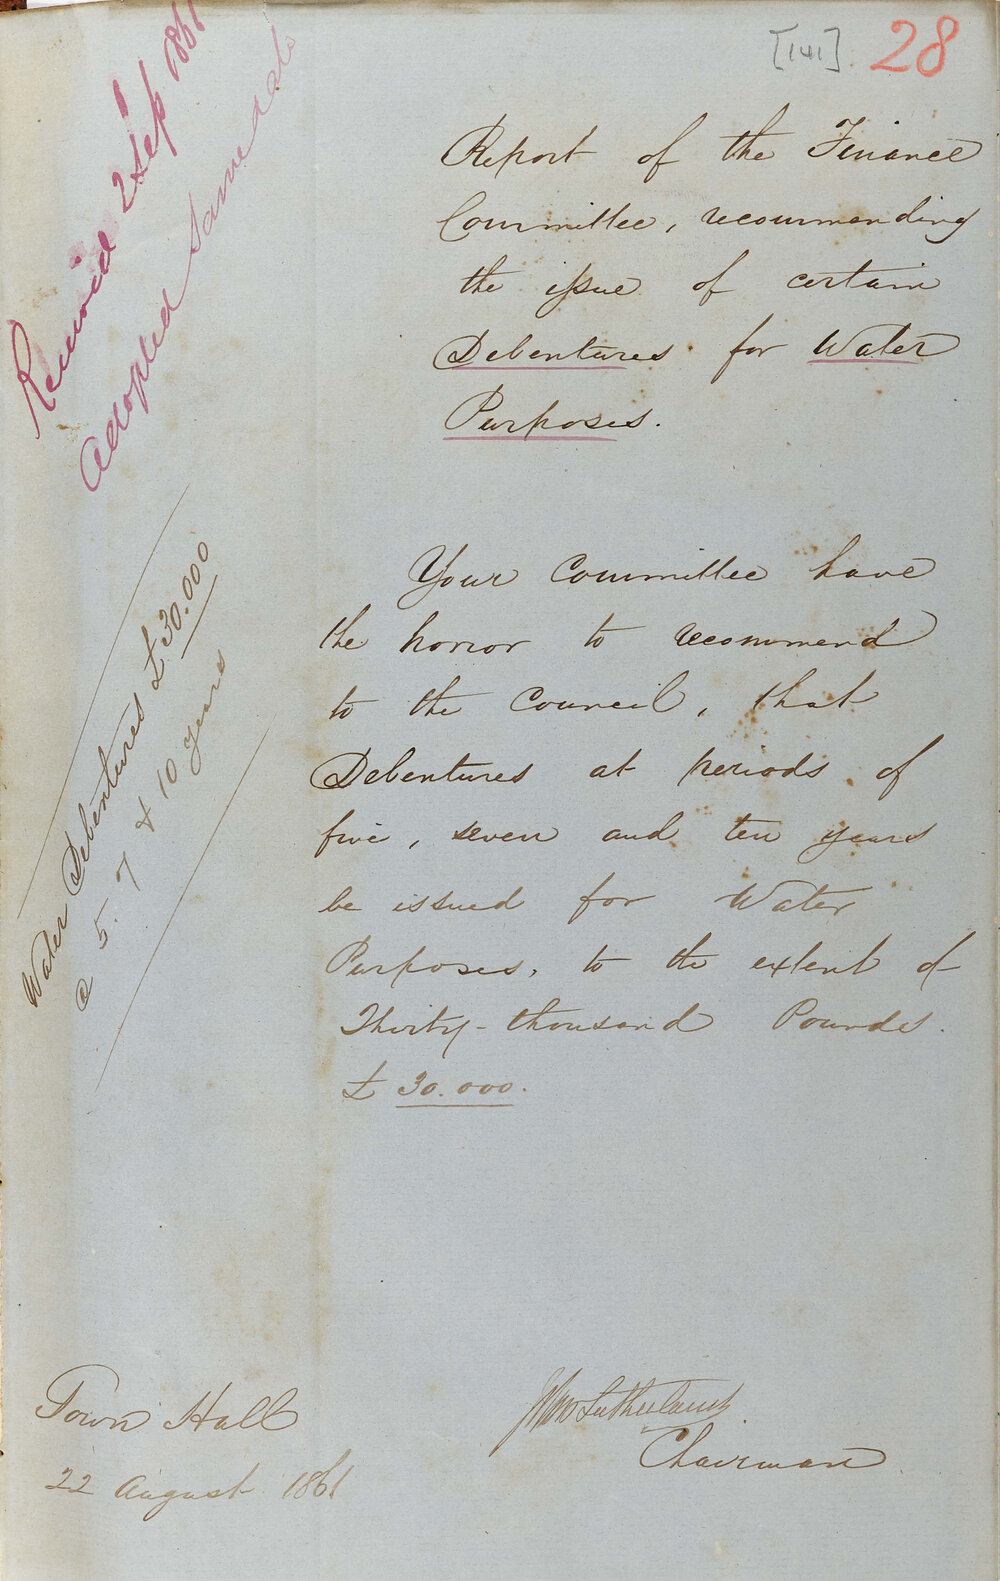 [141] 28
Received 2 Sep 1861
Adopted same date
Report of the Finance
Committee, recommending
the issue of certain
Debentures for Water
Purposes.
Water Debentures £30.000
@ 5. 7 & 10 years
Your Committee have
the honor to recommend
to the Council, that
Debentures at periods of
five, seven and ten years
be issued for Water
Purposes, to the extent of
Thirty-thousand Pounds.
£30.000.
Town Hall
22 August 1861
Sutherland
Chairman